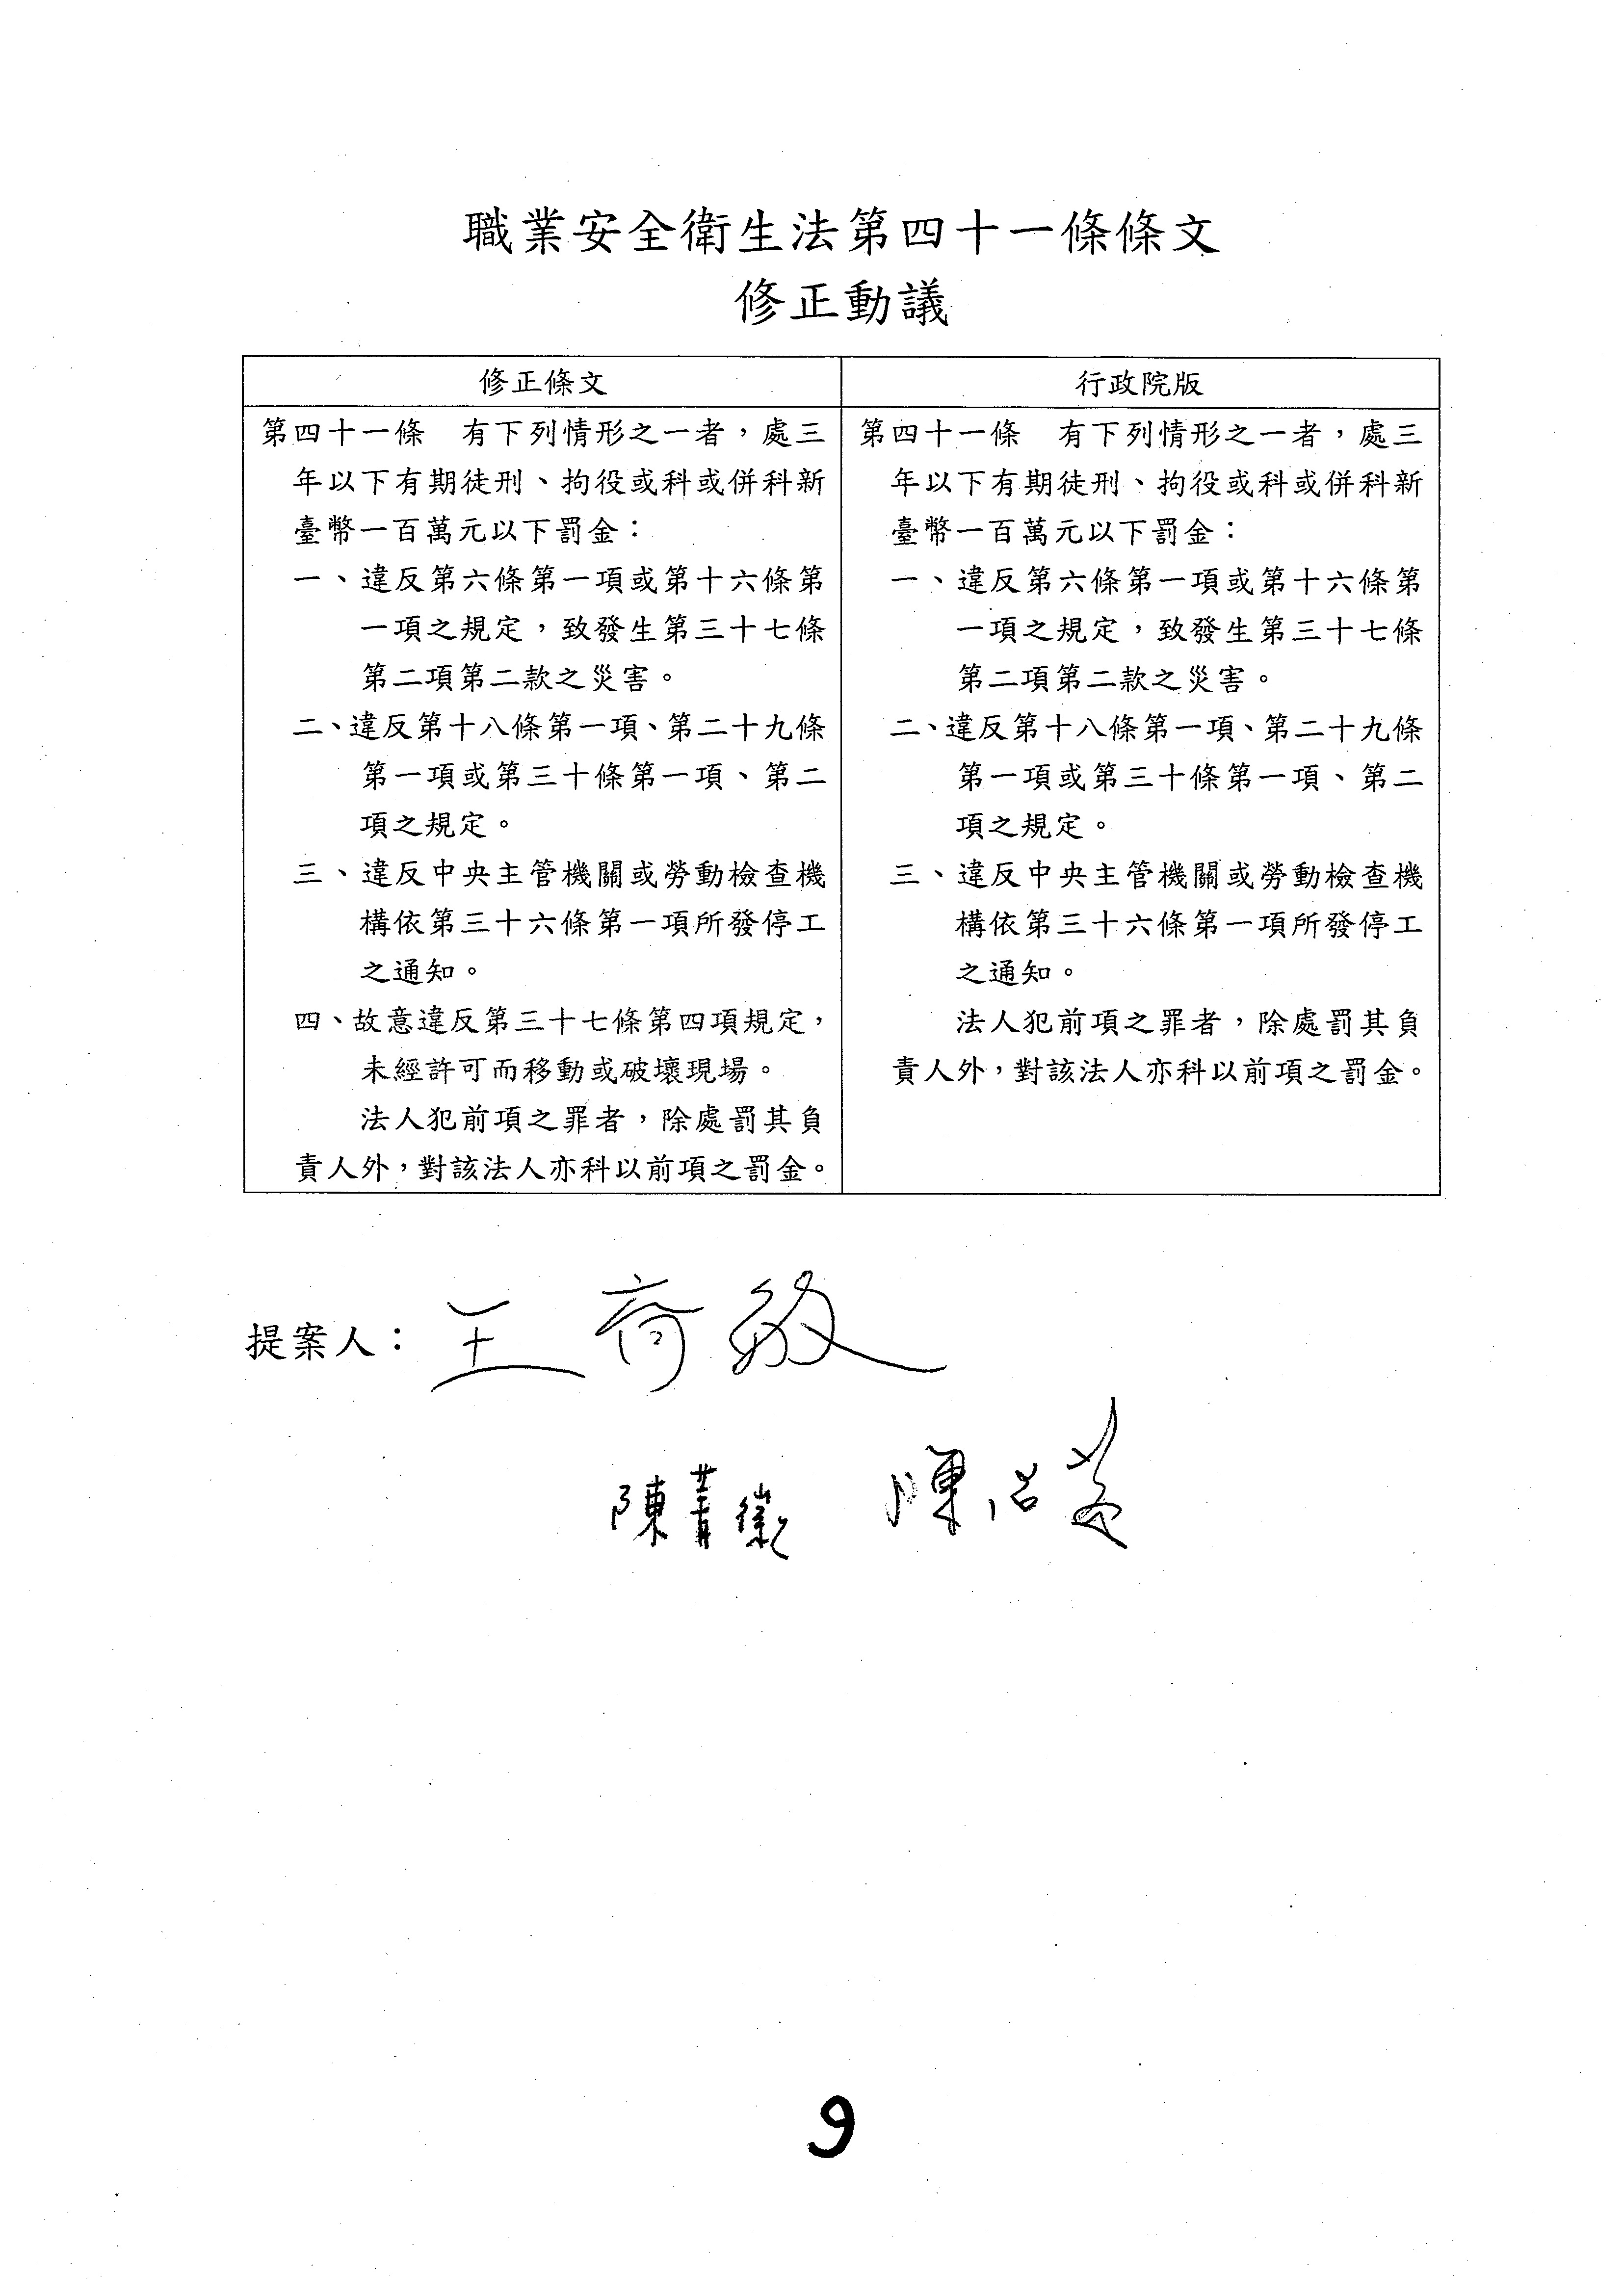 職業安全衛生法第四十一條條文
修正動議
修正條文
第四十一條　有下列情形之一者，處三
年以下有期徒刑、拘役或科或併科新
臺幣一百萬元以下罰金：
一、違反第六條第一項或第十六條第
一項之規定，致發生第三十七條
第二項第二款之災害。
二、違反第十八條第一項、第二十九條
第一項或第三十條第一項、第二
項之規定。
三、違反中央主管機關或勞動檢查機
構依第三十六條第一項所發停工
之通知。
四、故意違反第三十七條第四項規定，
未經許可而移動或破壞現場。
法人犯前項之罪者，除處罰其負
責人外，對該法人亦科以前項之罰金。
行政院版
第四十一條　有下列情形之一者，處三
年以下有期徒刑、拘役或科或併科新
臺幣一百萬元以下罰金：
一、違反第六條第一項或第十六條第
一項之規定，致發生第三十七條
第二項第二款之災害。
二、違反第十八條第一項、第二十九條
第一項或第三十條第一項、第二
項之規定。
三、違反中央主管機關或勞動檢查機
構依第三十六條第一項所發停工
之通知。
法人犯前項之罪者，除處罰其負
責人外，對該法人亦科以前項之罰金。
提案人：王育敏
陳菁徽 陳昭姿
9